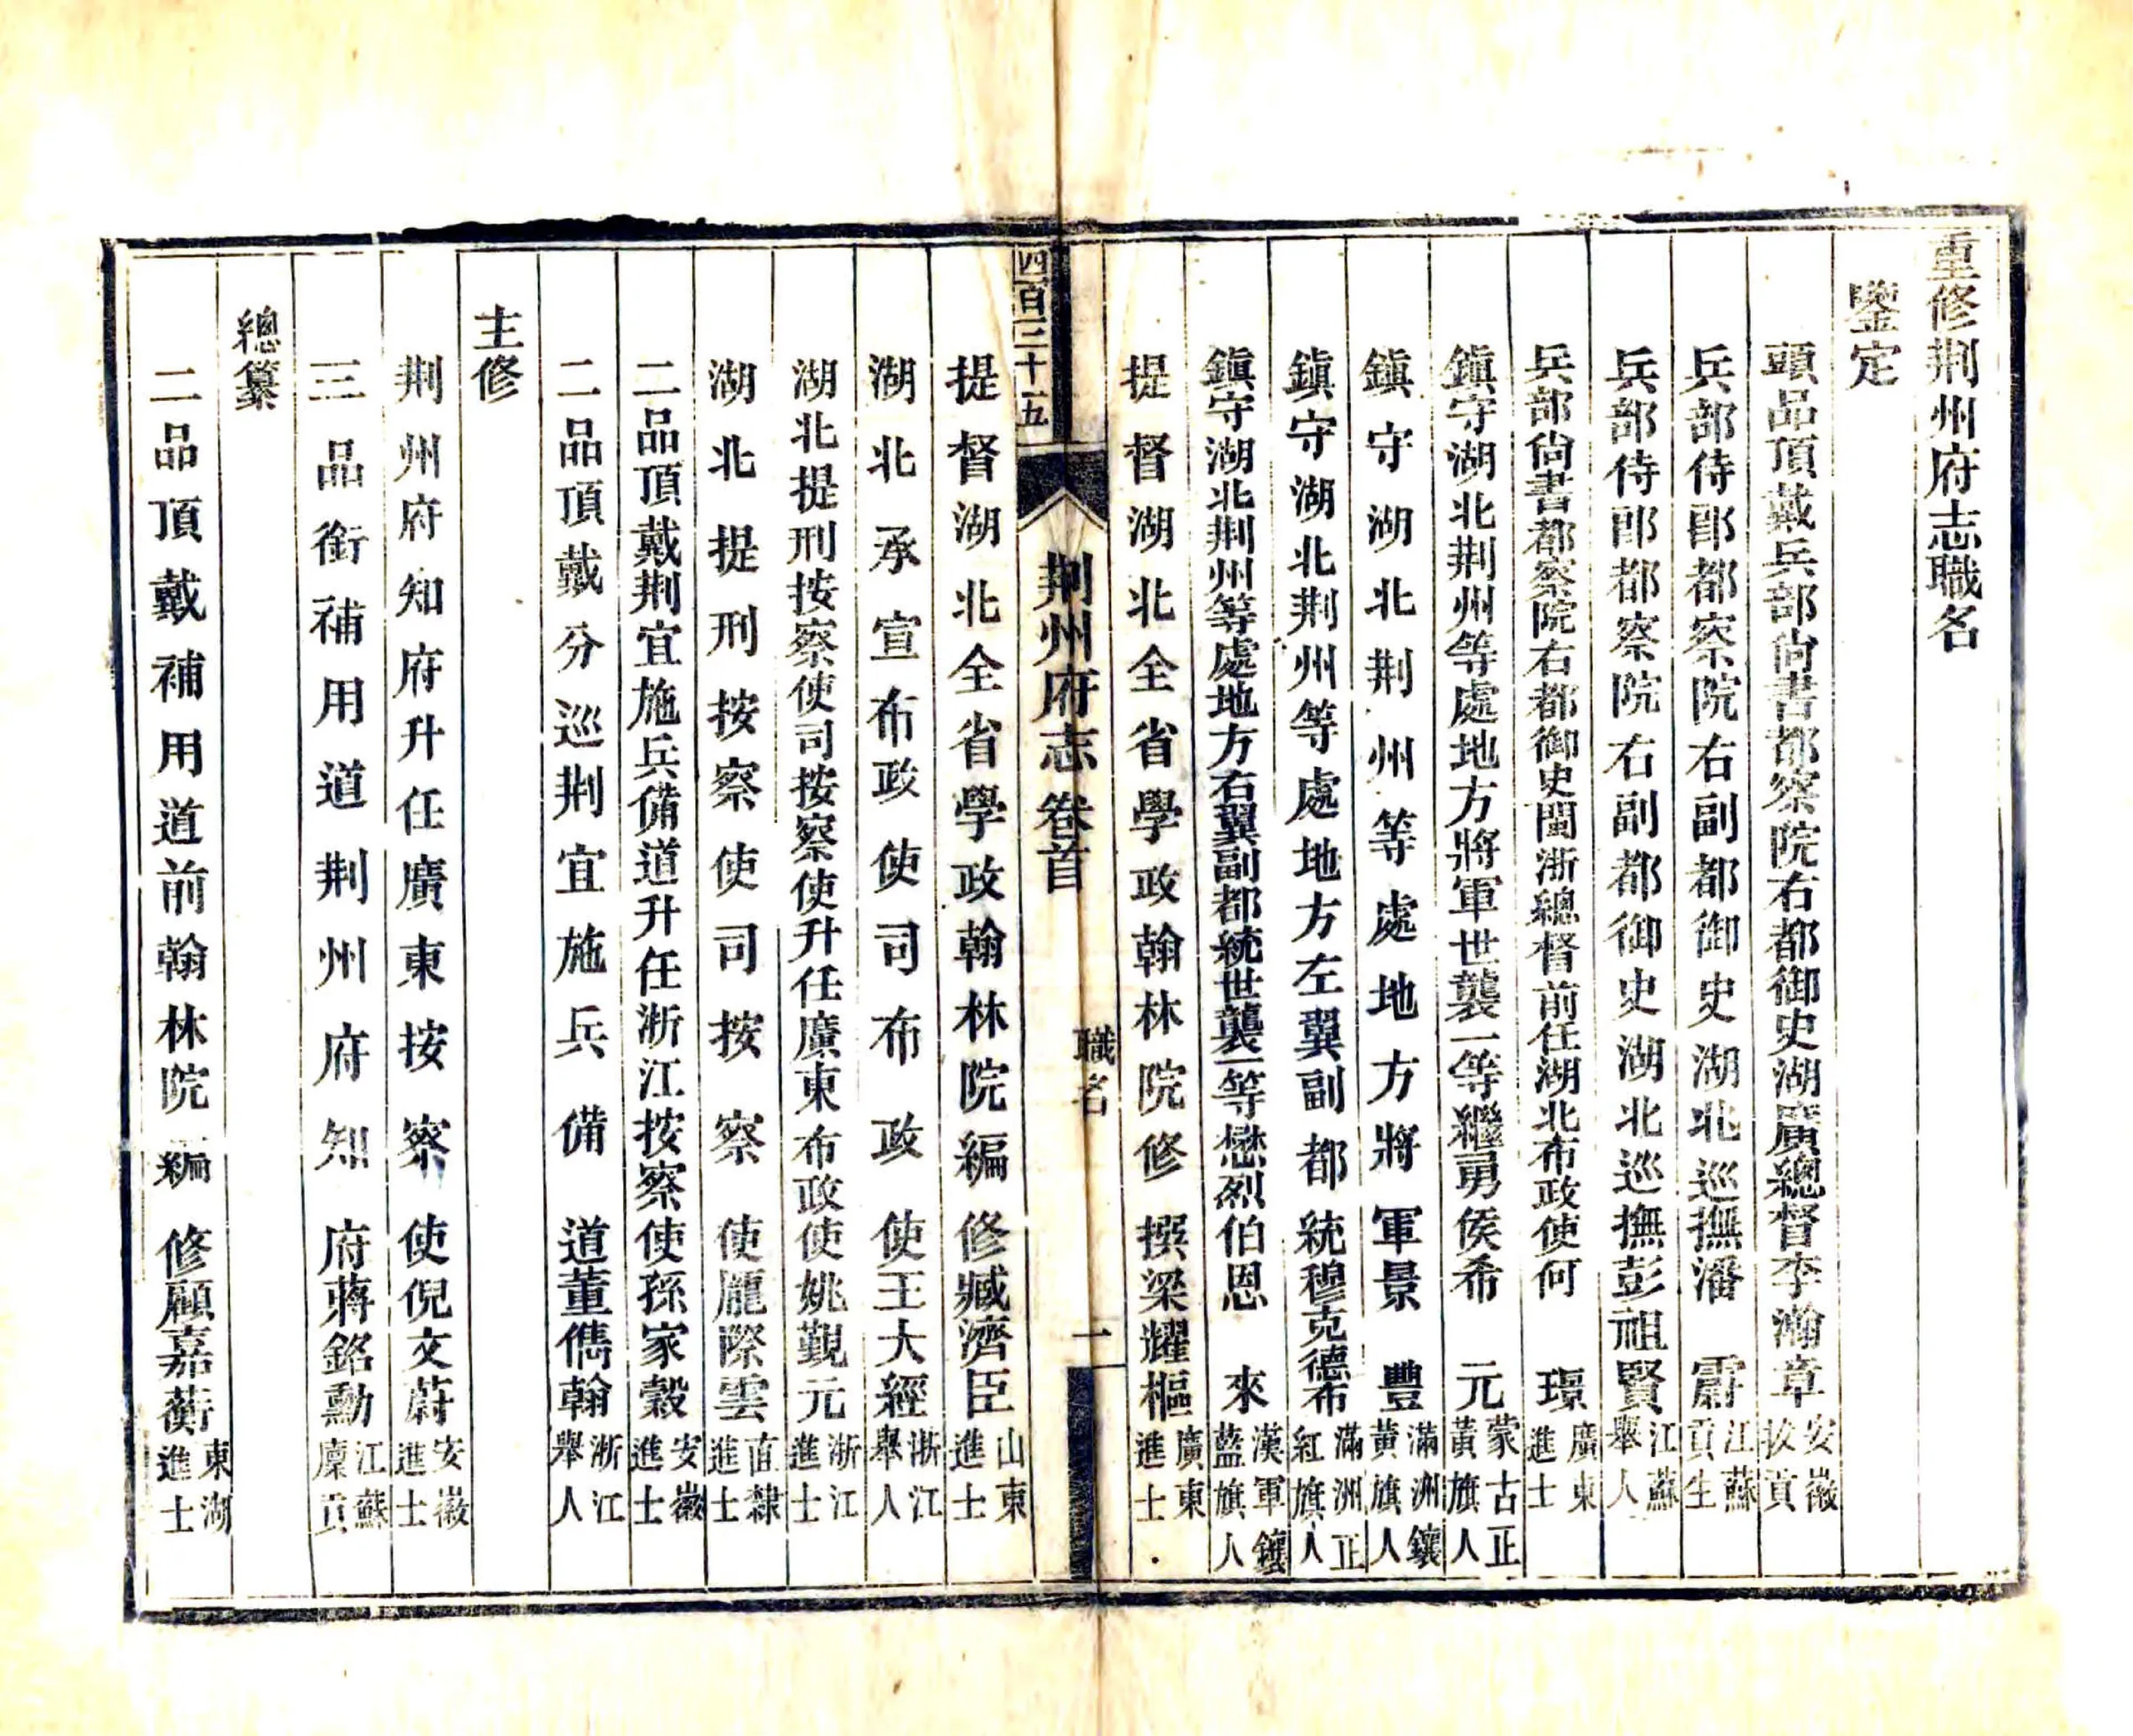 重修荆州府志職名
鑒定
頭品頂戴兵部尙書都察院右都御史湖廣總督李瀚章安徽拔貢
兵部侍郎都察院右副都御史湖北巡撫潘霨江蘇貢生
兵部侍郎都察院右副都御史湖北巡撫彭祖賢江蘇舉人
兵部尙書都察院右都御史閩浙總督前任湖北布政使何璟廣東進士
鎮守湖北荆州等處地方將軍世襲一等繼勇侯希元蒙古正黃旗人
鎮守湖北荆州等處地方將軍景豐滿洲鑲黃旗人
鎮守湖北荆州等處地方左翼副都統穆克德布滿洲正紅旗人
鎮守湖北荆州等處地方右翼副都統世襲一等懋烈伯恩來漢軍鑲藍旗人
提督湖北全省學政翰林院修撰梁耀樞廣東進士
四百三十五
荆州府志卷首
職名
一
提督湖北全省學政翰林院編修臧濟臣山東進士
湖北承宣布政使司布政使王大經浙江舉人
湖北提刑按察使司按察使升任廣東布政使姚覲元浙江進士
湖北提刑按察使司按察使龐際雲直隸進士
二品頂戴荆宜施兵備道升任浙江按察使孫家穀安徽進士
二品頂戴分巡荆宜施兵備道董儁翰浙江舉人
主修
荆州府知府升任廣東按察使倪文蔚安徽進士
三品銜補用道荆州府知府蔣銘勳江蘇廩貢
總纂
二品頂戴補用道前翰林院編修顧嘉蘅東湖進士